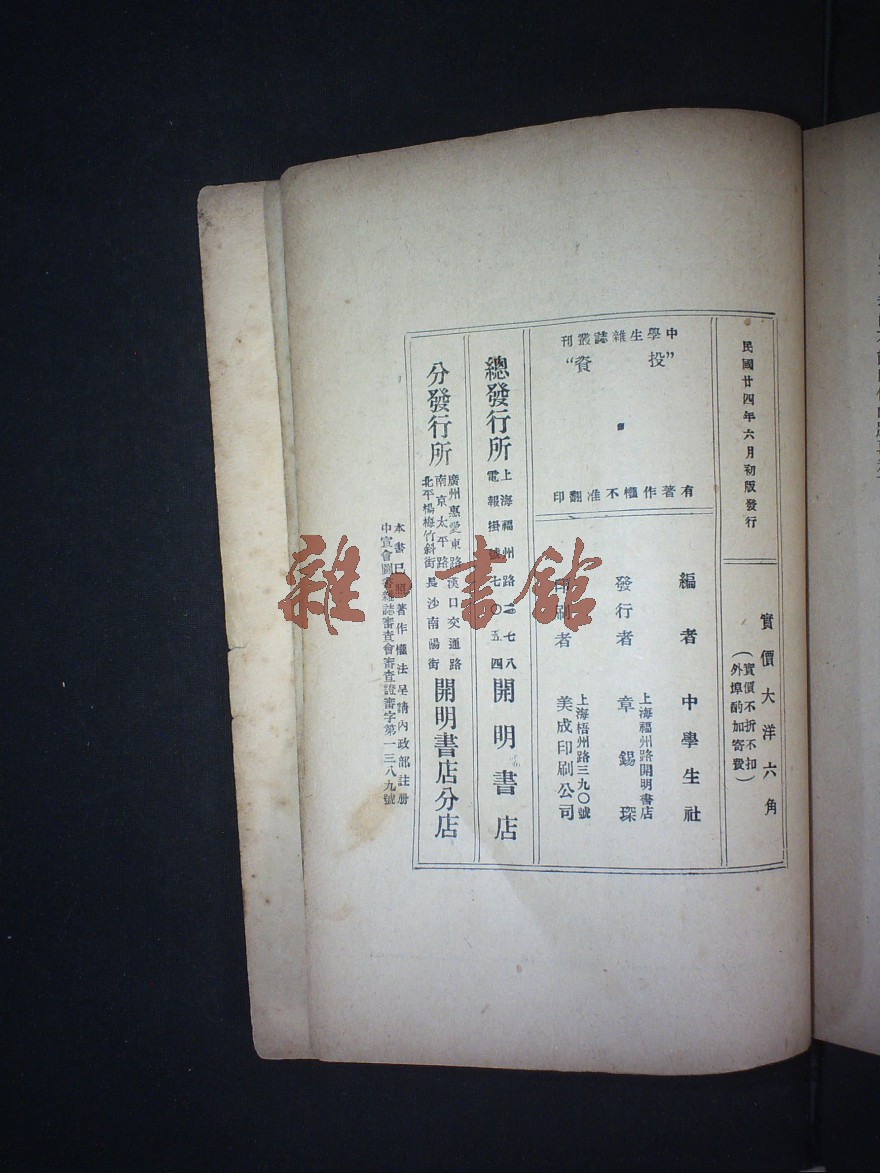 民國廿四年六月初版發行
實價大洋六角
（實價不折不扣
外埠酌加寄費）
中學生雜誌叢刊
“投資”
有著作權不准翻印
編者 中學生社
發行者 上海福州路開明書店
章錫琛
印刷者 上海梧州路三九〇號
美成印刷公司
總發行所 上海福州路二七八
電報掛號七〇五四
開明書店
分發行所 廣州惠愛東路漢口交通路
南京太平路
北平楊梅竹斜街長沙南陽街
開明書店分店
本書已照著作權法呈請內政部註册
中宣會圖書雜誌審查會審查證審字第一三八九號
雜·書館